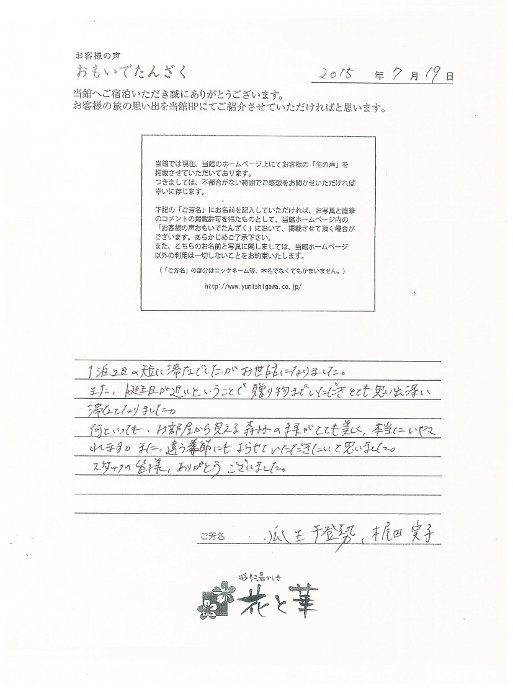 お客様の声
おもいでたんざく
2015 年 7 月 19 日
当館へご宿泊いただき誠にありがとうございます。
お客様の旅の思い出を当館HPにてご紹介させていただければと思います。
当館では現在、当館のホームページ上にてお客様の「生の声」を
掲載させていただいております。
つきましては、不都合がない範囲でご感想をお聞かせいただければ
幸いに存じます。
下記の「ご芳名」にお名前を記入していただければ、お写真と直筆
のコメントの掲載許可を得たものとして、当館ホームページ内の
「お客様の声おもいでたんざく」において、掲載させて頂く場合が
ございます。あらかじめご了承下さい。
また、こちらのお名前と写真に関しましては、当館ホームページ
以外の利用は一切しないことをお約束いたします。
（「ご芳名」の部分はニックネーム等、本名でなくてもかまいません。）
http://www.yunishigawa.co.jp/
1泊2日の短い滞在でしたがお世話になりました。
また、誕生日が近いということで贈り物までいただきとても思い出深い
滞在となりました。
何といっても、お部屋から見える森林の緑がとても美しく、本当にいやさ
れます。また、違う季節にもよらせていただきたいと思いました。
スタッフの皆様、ありがとうございました。
ご芳名 瓜生 千登勢、梶田 実子
彩り湯かしき
花と華